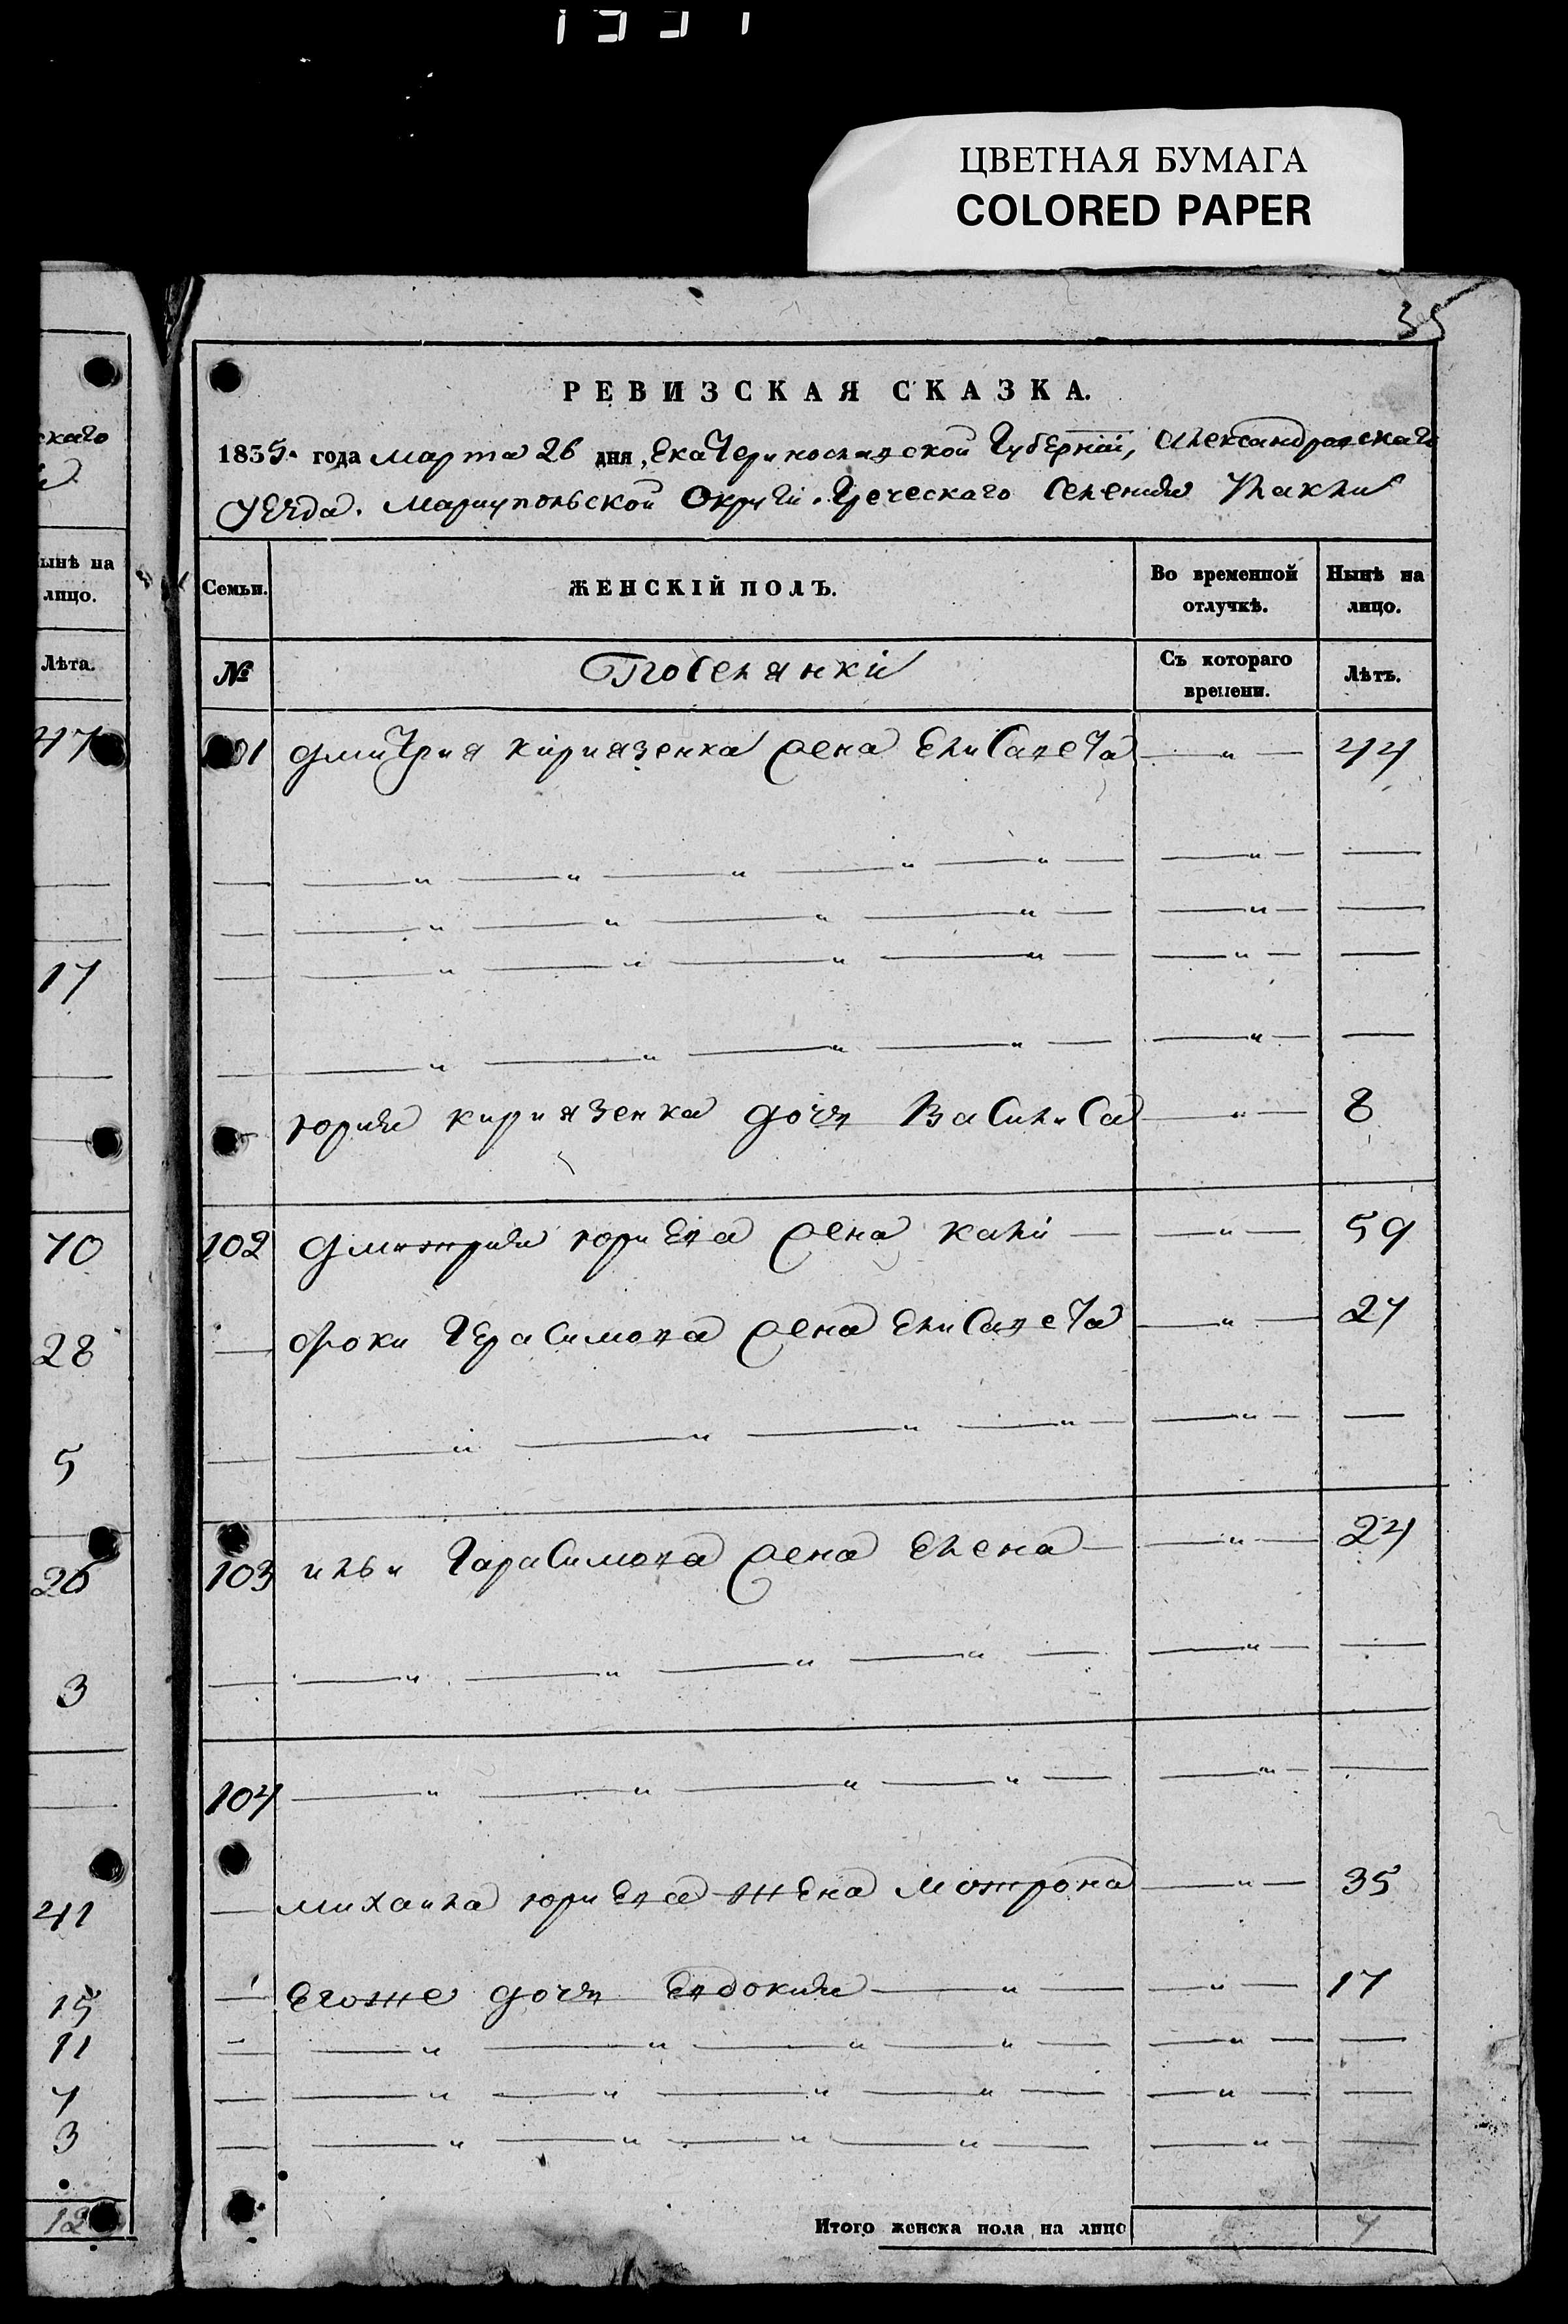 ЦВЕТНАЯ БУМАГА
COLORED PAPER
35
РЕВИЗСКАЯ СКАЗКА.
1835. года марта 26 дня, Екатеринославской Губерніи, Александровскаго
уезда. Мариупольской Округи. Греческаго Селения
скаго
Нынѣ на лицо.
Лѣта.
47
17
10
28
5
26
3
41
15
11
7
3
12
Семьи. ЖЕНСКІЙ ПОЛЪ. Во временной отлучкѣ. Нынѣ на лицо.
№ Поселянки Съ котораго времени. Лѣтъ.
101 Дмитрия кириязенка жена Елисавета — " — 44
— — " — " — " — " — " — — " — —
— — " — " — " — " — — " — —
— — " — " — " — " — — " — —
— — " — " — " — " — — " — —
— юрия кириязенка дочь Василиса — " — 8
102 Дмитрия юриева жена кали — — " — 59
— Фоки Герасимова жена Елисавета — " — 27
— — " — " — " — " — — " — —
103 ильи Гарасимова жена Елена — — " — 24
— — " — " — " — " — — " — —
104 — " — " — " — " — — " — —
— михаила юриева жена мотрона — " — 35
— Егоже дочь Евдокия — " — — " — 17
— — " — " — " — " — — " — —
— — " — " — " — " — — " — —
— — " — " — " — " — — " — —
Итого женска пола на лицо 7